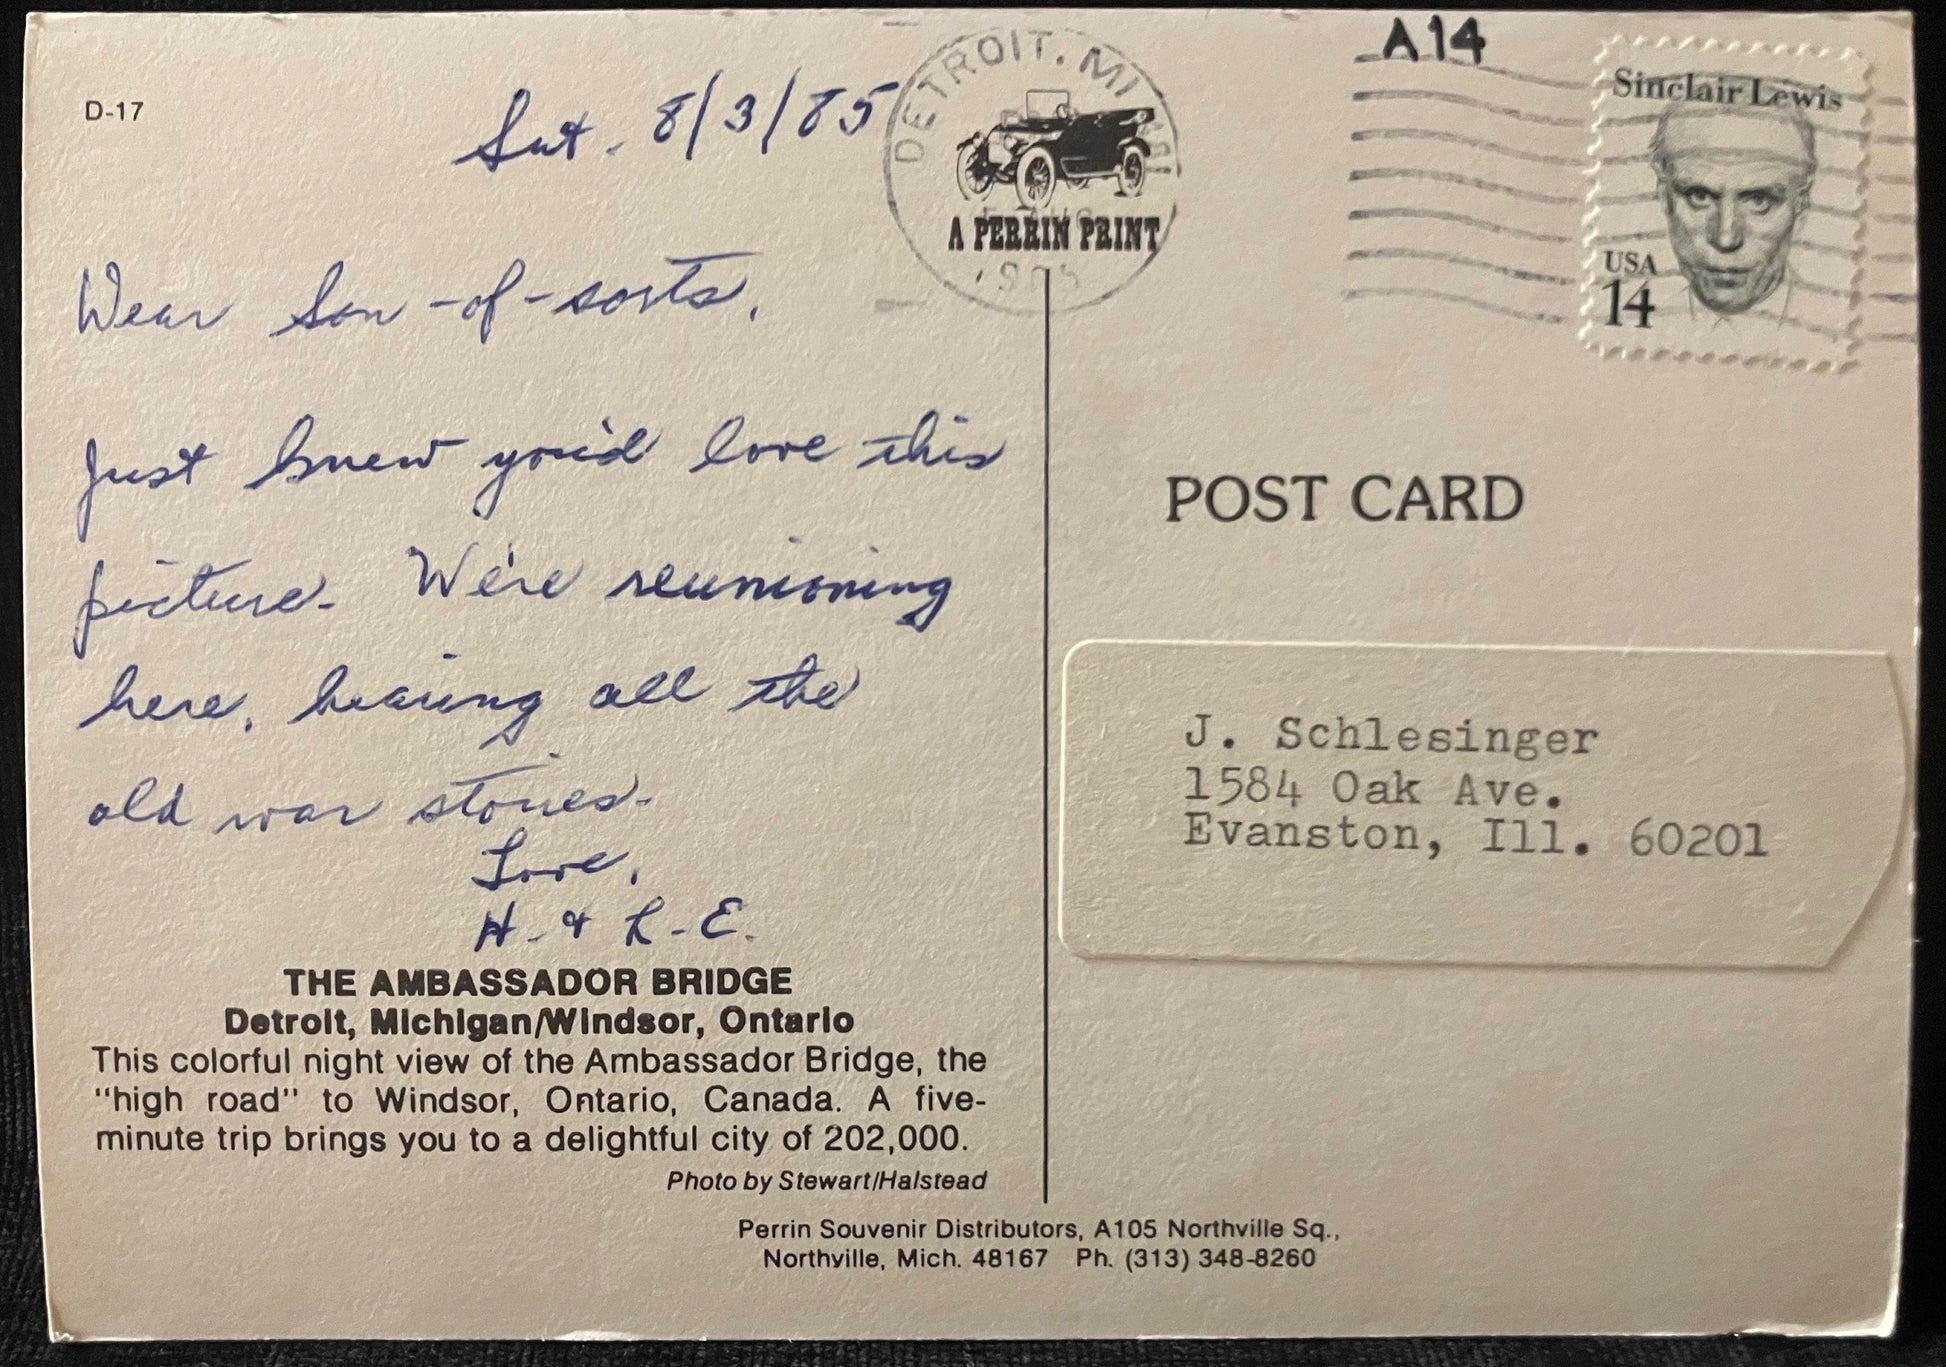 D-17
Sat. 8/3/85
DETROIT, MI
A PERRIN PRINT
1985
A14
Sinclair Lewis
USA
14
Wear Son-of-sorts,
Just knew you'd love this
picture. We're reunioning
here, hearing all the
old war stories.
Love,
H. & L. E.
THE AMBASSADOR BRIDGE
Detroit, Michigan/Windsor, Ontario
This colorful night view of the Ambassador Bridge, the
"high road" to Windsor, Ontario, Canada. A five-
minute trip brings you to a delightful city of 202,000.
Photo by Stewart/Halstead
POST CARD
J. Schlesinger
1584 Oak Ave.
Evanston, Ill. 60201
Perrin Souvenir Distributors, A105 Northville Sq.,
Northville, Mich. 48167 Ph. (313) 348-8260